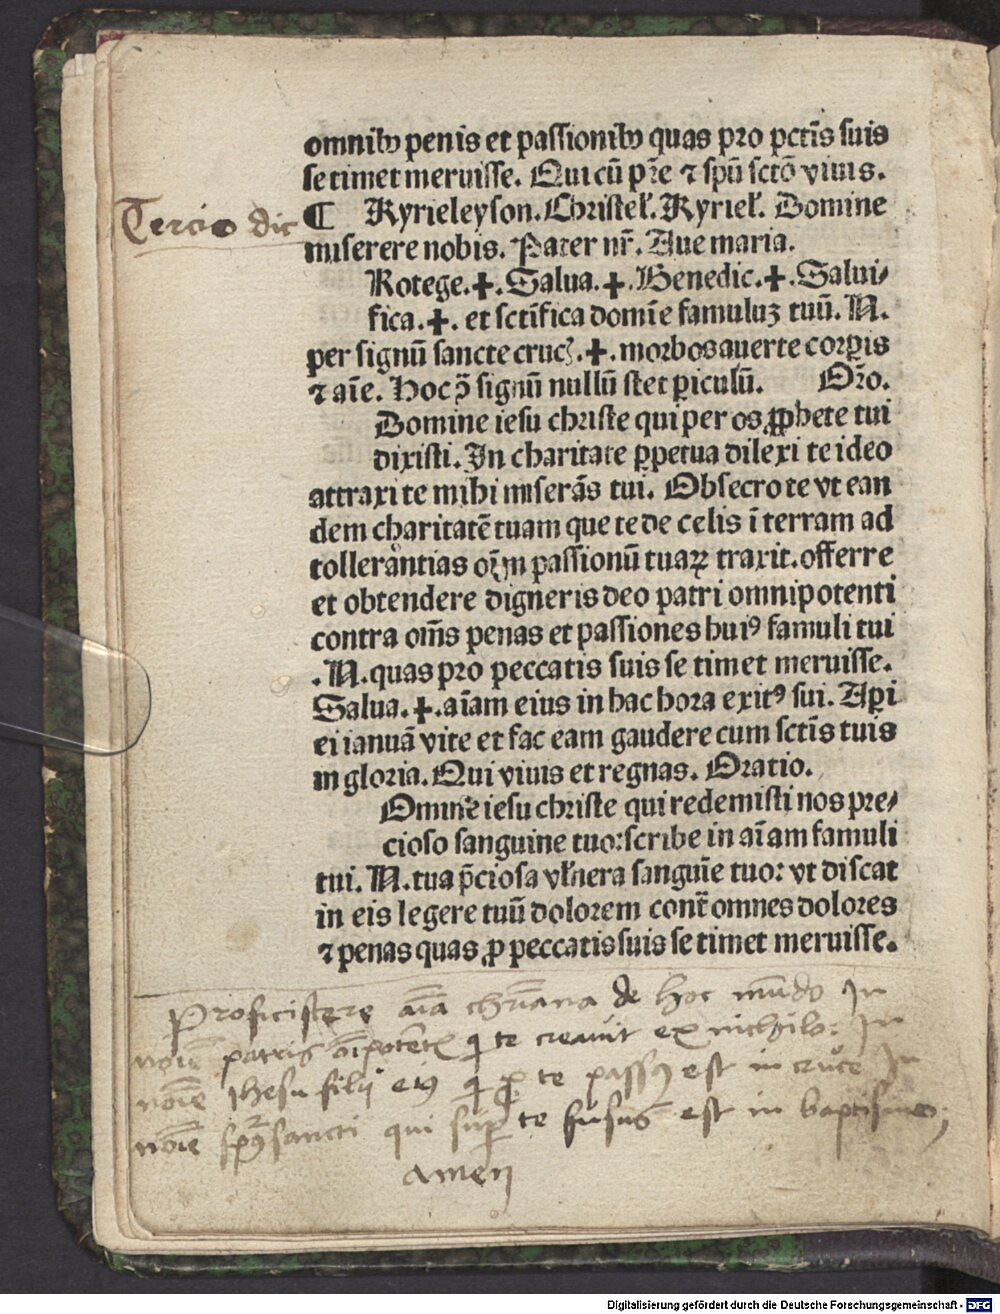 omnibꝰ penis et passionibꝰ quas pro pctīs suis
se timet meruisse. Qui cū pr̄e ⁊ spū sctō viuis.
Tercio dic
¶ Kyrieleyson. Christeł. Kyrieł. Domine
miserere nobis. Pater nr̄. Aue maria.
Rotege.✚.Salua.✚.Benedic.✚.Salui/
fica.✚. et sctīfica domīe famuluꝫ tuū. N.
per signū sancte cruc̄.✚.morbos auerte corꝑis
⁊ aīe. Hoc ꝯ̄ signū nullū stet ꝑiculū. Orō.
Domine iesu christe qui per os ꝓphete tui
dixisti. In charitate ꝑpetua dilexi te ideo
attraxi te mihi miserās tui. Obsecro te vt ean
dem charitatē tuam que te de celis ī terram ad
tollerantias oīm passionū tuaꝝ traxit. offerre
et obtendere digneris deo patri omnipotenti
contra oms̄ penas et passiones huiꝰ famuli tui
.N.quas pro peccatis suis se timet meruisse.
Salua.✚.aīam eius in hac hora exitꝰ sui. Aꝑi
ei ianuā vite et fac eam gaudere cum sctīs tuis
in gloria. Qui viuis et regnas. Oratio.
Omine iesu christe qui redemisti nos pre/
cioso sanguine tuo: scribe in aīam famuli
tui. N. tua p̄ciosa vlnera sanguīe tuo: vt discat
in eis legere tuū dolorem contˉ omnes dolores
⁊ penas quas ꝓ peccatis suis se timet meruisse.
Proficiscere aīa chr̄iana de hoc mūdo In
noīe patris oīpotētꝭ q te creauit ex nichilo: In
noīe Ihesu filij eiꝰ q ꝓ te passꝰ est in cruce In
noīe spꝰ sancti qui suꝑ te fusus est in baptismo,
amen
Digitalisierung gefördert durch die Deutsche Forschungsgemeinschaft - DFG